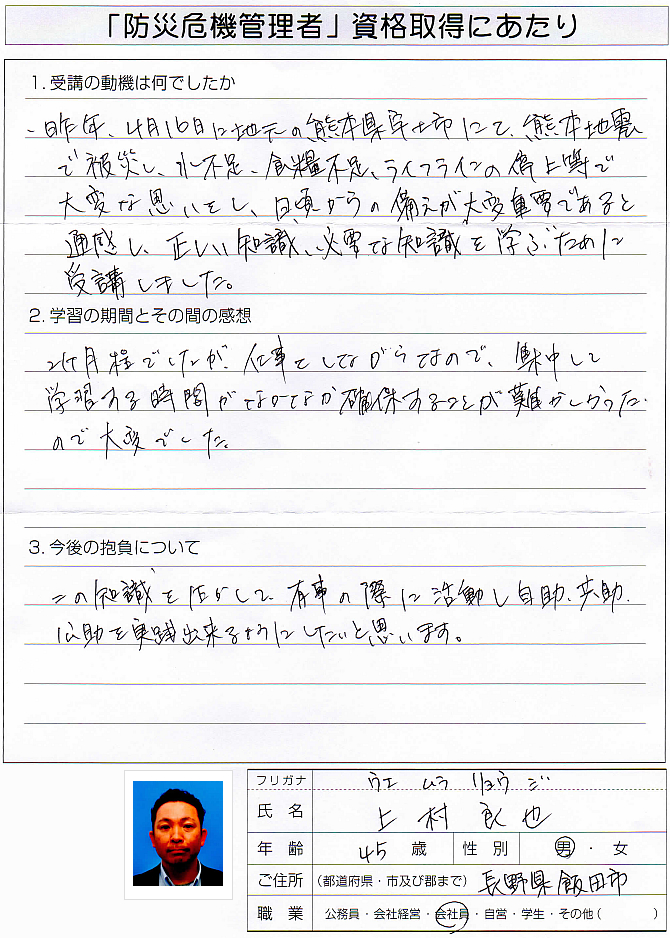 「防災危機管理者」資格取得にあたり
1. 受講の動機は何でしたか
昨年、4月16日に地元の熊本県宇土市にて、熊本地震
で被災し、水不足、食糧不足、ライフラインの停止等で
大変な思いをし、日頃からの備えが大変重要であると
通感し、正しい知識、必要な知識を学ぶために
受講しました。
2. 学習の期間とその間の感想
2ヶ月程でしたが、仕事をしながらなので、集中して
学習する時間がなかなか確保することが難かしかった
ので大変でした。
3. 今後の抱負について
この知識を活かして、有事の際に活動し自助、共助、
公助を実践出来るようにしたいと思います。
フリガナ ウエ ムラ リョウ ジ
氏 名 上 村 良 也
年 齢 45 歳 性 別 男 ・ 女
ご住所 (都道府県・市及び郡まで) 長野県飯田市
職 業 公務員・会社経営・会社員・自営・学生・その他( )